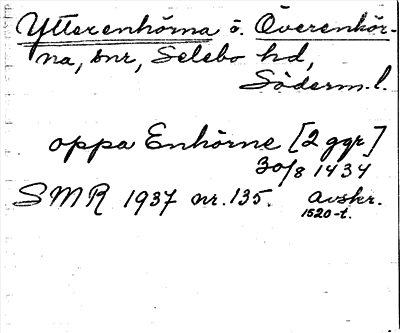 Ytterenhörna o. Överenhör-
na, snr, Selebo hd,
Söderm. l.
oppa Enhörne [2 ggr]
30/8 1434
SMR 1937 nr. 135. Avskr.
1520-t.